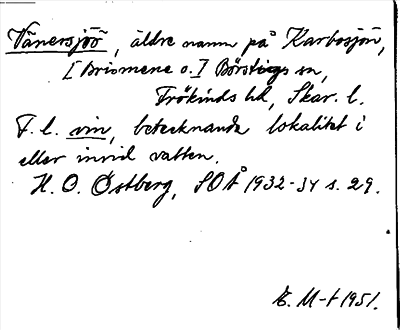 Vänersjöö, äldre namn på Karbosjön,
[Brismene o.] Börstigs sn,
Frökinds hd, Skar. l.
F. l. vin, betecknande lokalitet i
eller invid vatten.
H. O. Östberg, SOÅ 1932-34 s. 29.
E. M-t 1951.